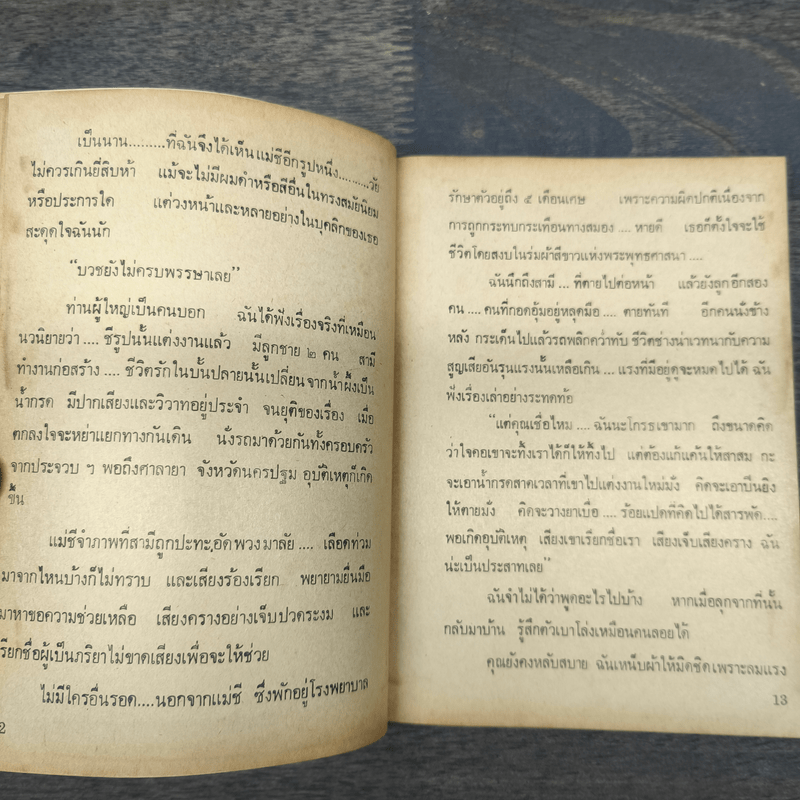 เป็นนาน.........ที่ฉันจึงได้เห็นแม่ชีอีกรูปหนึ่ง..........วัย
ไม่ควรเกินยี่สิบห้า แม้จะไม่มีผมดำหรือสีอื่นในทรงสมัยนิยม
หรือประการใด แต่วงหน้าและหลายอย่างในบุคลิกของเธอ
สะดุดใจฉันนัก
“บวชยังไม่ครบพรรษาเลย”
ท่านผู้ใหญ่เป็นคนบอก ฉันได้ฟังเรื่องจริงที่เหมือน
นวนิยายว่า .... ชีรูปนั้นแต่งงานแล้ว มีลูกชาย ๒ คน สามี
ทำงานก่อสร้าง .... ชีวิตรักในบั้นปลายนั้นเปลี่ยนจากน้ำผึ้งเป็น
น้ำกรด มีปากเสียงและวิวาทอยู่ประจำ จนยุติของเรื่อง เมื่อ
ตกลงใจจะหย่าแยกทางกันเดิน นั่งรถมาด้วยกันทั้งครอบครัว
จากประจวบ ฯ พอถึงศาลายา จังหวัดนครปฐม อุบัติเหตุก็เกิด
ขึ้น
แม่ชีจำภาพที่สามีถูกปะทะอัดพวงมาลัย .... เลือดท่วม
มาจากไหนบ้างก็ไม่ทราบ และเสียงร้องเรียก พยายามยื่นมือ
มาหาขอความช่วยเหลือ เสียงครางอย่างเจ็บปวดระงม และ
รียกชื่อผู้เป็นภริยาไม่ขาดเสียงเพื่อจะให้ช่วย
ไม่มีใครอื่นรอด....นอกจากแม่ชี ซึ่งพักอยู่โรงพยาบาล
2
รักษาตัวอยู่ถึง ๕ เดือนเศษ เพราะความผิดปกติเนื่องจาก
การถูกกระทบกระเทือนทางสมอง .... หายดี เธอก็ตั้งใจจะใช้
ชีวิตโดยสงบในร่มผ้าสีขาวแห่งพระพุทธศาสนา ....
ฉันนึกถึงสามี ... ที่ตายไปต่อหน้า แล้วยังลูกอีกสอง
คน .... คนที่กอดอุ้มอยู่หลุดมือ .... ตายทันที อีกคนนั่งข้าง
หลัง กระเด็นไปแล้วรถพลิกคว่ำทับ ชีวิตช่างน่าเวทนากับความ
สูญเสียอันรุนแรงนั้นเหลือเกิน ... แรงที่มีอยู่ดูจะหมดไปได้ ฉัน
ฟังเรื่องเล่าอย่างระทดท้อ
“แต่คุณเชื่อไหม .... ฉันนะโกรธเขามาก ถึงขนาดคิด
ว่าใจคอเขาจะทิ้งเราได้ก็ให้ทิ้งไป แต่ต้องแก้แค้นให้สาสม กะ
จะเอาน้ำกรดสาดเวลาที่เขาไปแต่งงานใหม่มั่ง คิดจะเอาปืนยิง
ให้ตายมั่ง คิดจะวางยาเบื่อ .... ร้อยแปดที่คิดไปได้สารพัด....
พอเกิดอุบัติเหตุ เสียงเขาเรียกชื่อเรา เสียงเจ็บเสียงคราง ฉัน
น่ะเป็นประสาทเลย”
ฉันจำไม่ได้ว่าพูดอะไรไปบ้าง หากเมื่อลุกจากที่นั้น
กลับมาบ้าน รู้สึกตัวเบาโล่งเหมือนคนลอยได้
คุณยังคงหลับสบาย ฉันเหน็บผ้าให้มิดชิดเพราะลมแรง
13